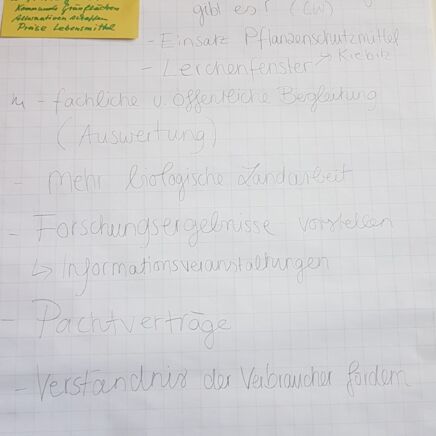 Kommunale Grünflächen
Alternativen schaffen
Preise Lebensmittel
gibt es? (GW)
- Einsatz Pflanzenschutzmittel
- Lerchenfenster → Kiebitz
- fachliche u. öffentliche Begleitung
(Auswertung)
- Mehr biologische Landarbeit
- Forschungsergebnisse vorstellen
↳ Informationsveranstaltungen
- Pachtverträge
- Verständnis der Verbraucher fördern